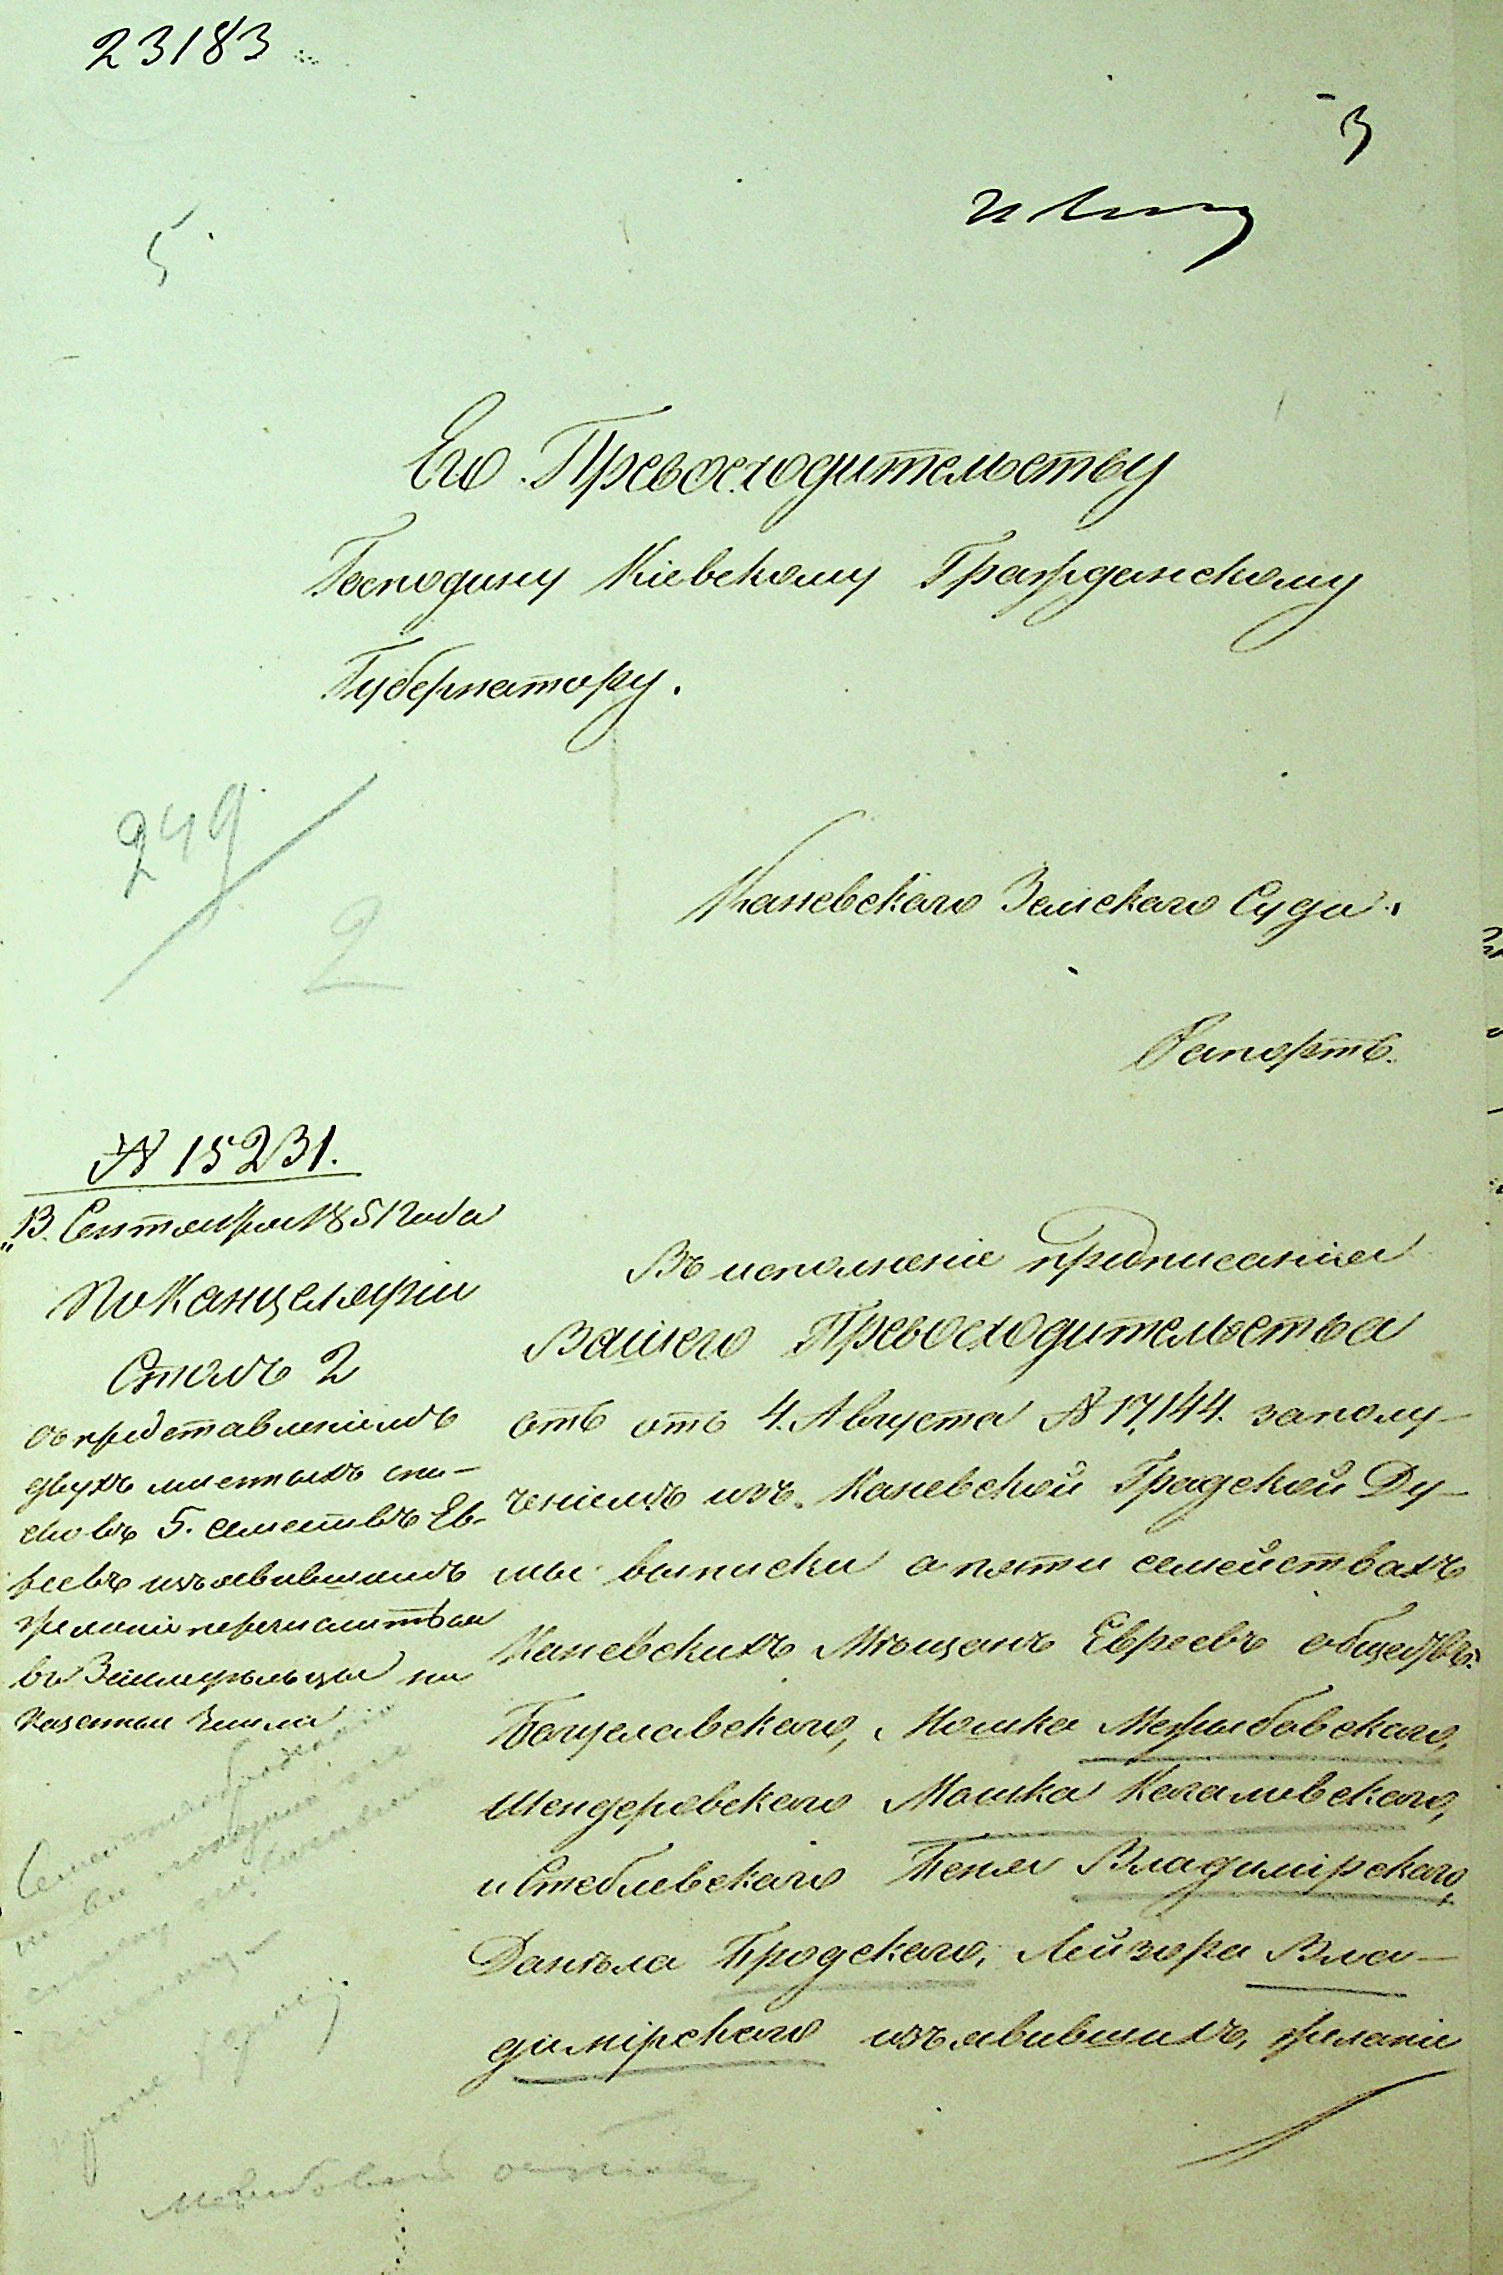 23183
3
5
Его Превосходительству
Господину Кіевскому Гражданскому
Губернатору.
249
2
Каневскаго Земскаго Суда.
Рапортъ.
№ 15231.
"13. Сентября 1851 года
По Канцеляріи
Столъ 2
съ представленіемъ
двухъ именныхъ спи-
сковъ 5. семействъ Ев-
реевъ изъявившимъ
желаніе перечислиться
въ Земледѣльцы на
казенныя земли
Въ исполненіе предписанія
Вашего Превосходительства
отъ отъ 4. Августа № 17,144. заполу-
ченіемъ изъ Каневской Градской Ду-
мы выписки о пяти семействахъ
Каневскихъ Мѣщанъ Евреевъ обществъ:
Богуславскаго, Мошка Межибовскаго,
Шендеровскаго Мошка Кагаловскаго,
и Стеблевскаго Бенея Владимірскаго,
Даніъла Бродскаго, Лейзора Вла-
димірскаго изъявившихъ, желаніе